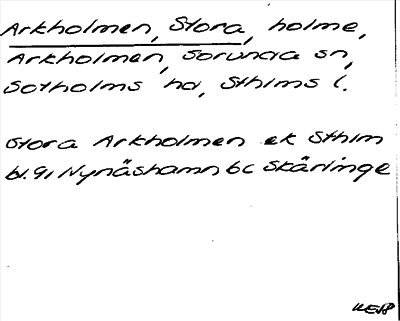 Arkholmen, Stora, holme,
Arkholmen, Sorunda sn,
Sotholms hd, Sthlms l.
Stora Arkholmen ek Sthlm
bl. 91 Nynäshamn bc Skäringe